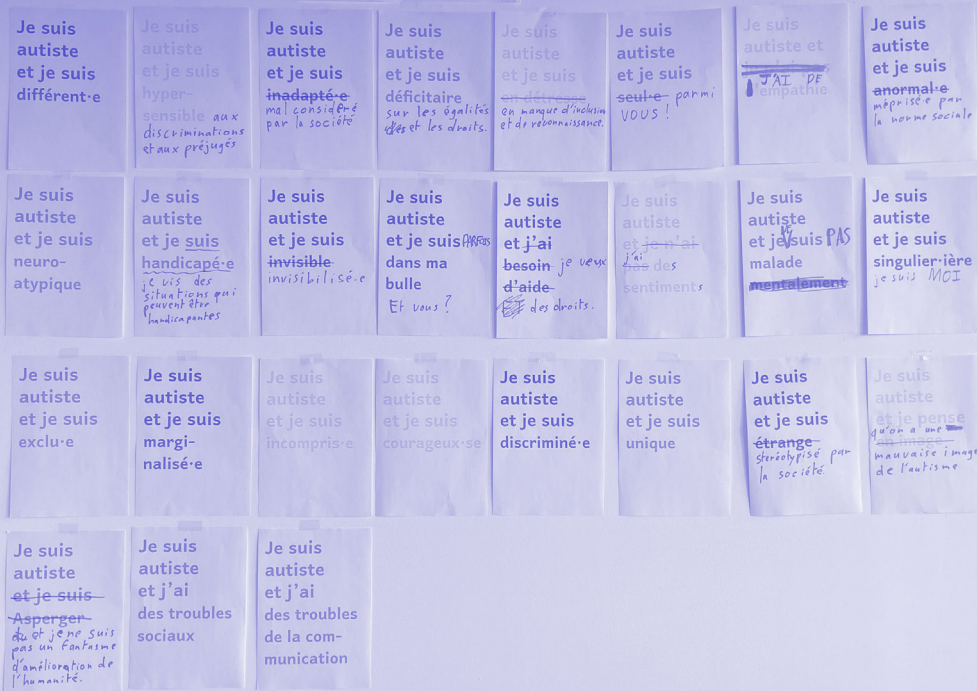 Je suis
autiste
et je suis
différent·e
Je suis
autiste
et je suis
hyper-
sensible aux
discriminations
et aux préjugés
Je suis
autiste
et je suis
inadapté·e
mal considéré
par la société
Je suis
autiste
et je suis
déficitaire
sur les égalités
et les droits.
Je suis
autiste
et je suis
en détresse
en manque d'inclusion
et de reconnaissance.
Je suis
autiste
et je suis
seul·e parmi
VOUS !
Je suis
autiste et
J'AI DE
l'empathie
Je suis
autiste
et je suis
anormal·e
méprisé·e par
la norme sociale
Je suis
autiste
et je suis
neuro-
atypique
Je suis
autiste
et je suis
handicapé·e
je vis des
situations qui
peuvent être
handicapantes
Je suis
autiste
et je suis
invisible
invisibilisé-e
Je suis
autiste
et je suis PARFOIS
dans ma
bulle
Et vous ?
Je suis
autiste
et j'ai
besoin je veux
d'aide
ET des droits.
Je suis
autiste
et je n'ai
j'ai
pas des
sentiments
Je suis
autiste
et je suis PAS
malade
mentalement
Je suis
autiste
et je suis
singulier·ière
je suis MOI
Je suis
autiste
et je suis
exclu·e
Je suis
autiste
et je suis
margi-
nalisé·e
Je suis
autiste
et je suis
incompris·e
Je suis
autiste
et je suis
courageux·se
Je suis
autiste
et je suis
discriminé·e
Je suis
autiste
et je suis
unique
Je suis
autiste
et je suis
étrange
stéréotypisé par
la société.
Je suis
autiste
et je pense
qu'on a une
en image
mauvaise image
de l'autisme
Je suis
autiste
et je suis
Asperger
et je ne suis
pas un fantasme
d'amélioration de
l'humanité.
Je suis
autiste
et j'ai
des troubles
sociaux
Je suis
autiste
et j'ai
des troubles
de la com-
munication